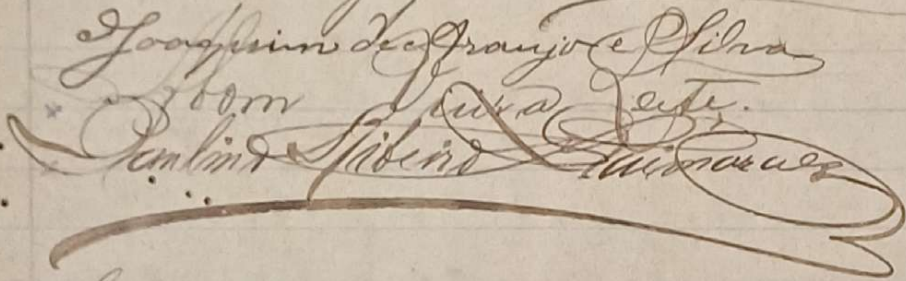 Joaquim de Araujo e Silva
Leite.
Paulino Ribeiro Guimarães